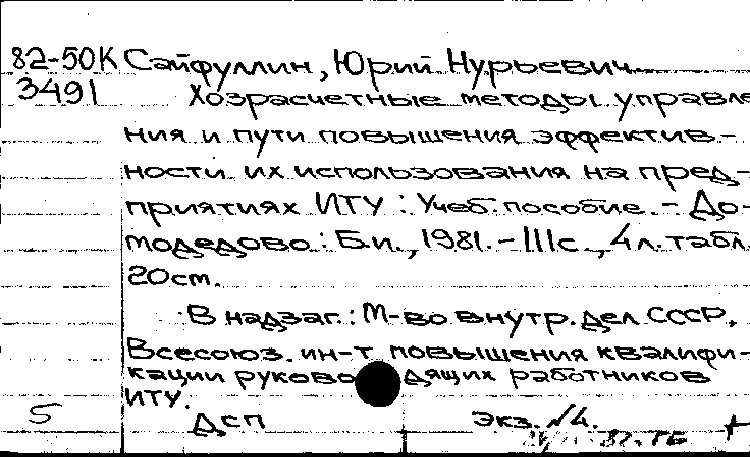 82-50К Сайфуллин, Юрий Нурьевич
3491 Хозрасчетные методы управле
ния и пути повышения эффектив-
ности их использования на пред-
приятиях ИТУ : Учеб. пособие. – До-
модедово : Б.и., 1981. – 111с., 4 л. табл.
20см.
В надзаг.: М-во внутр. дел СССР,
Всесоюз. ин-т повышения квалифи-
кации руководящих работников
ИТУ.
5 ДСП Экз. №4. +